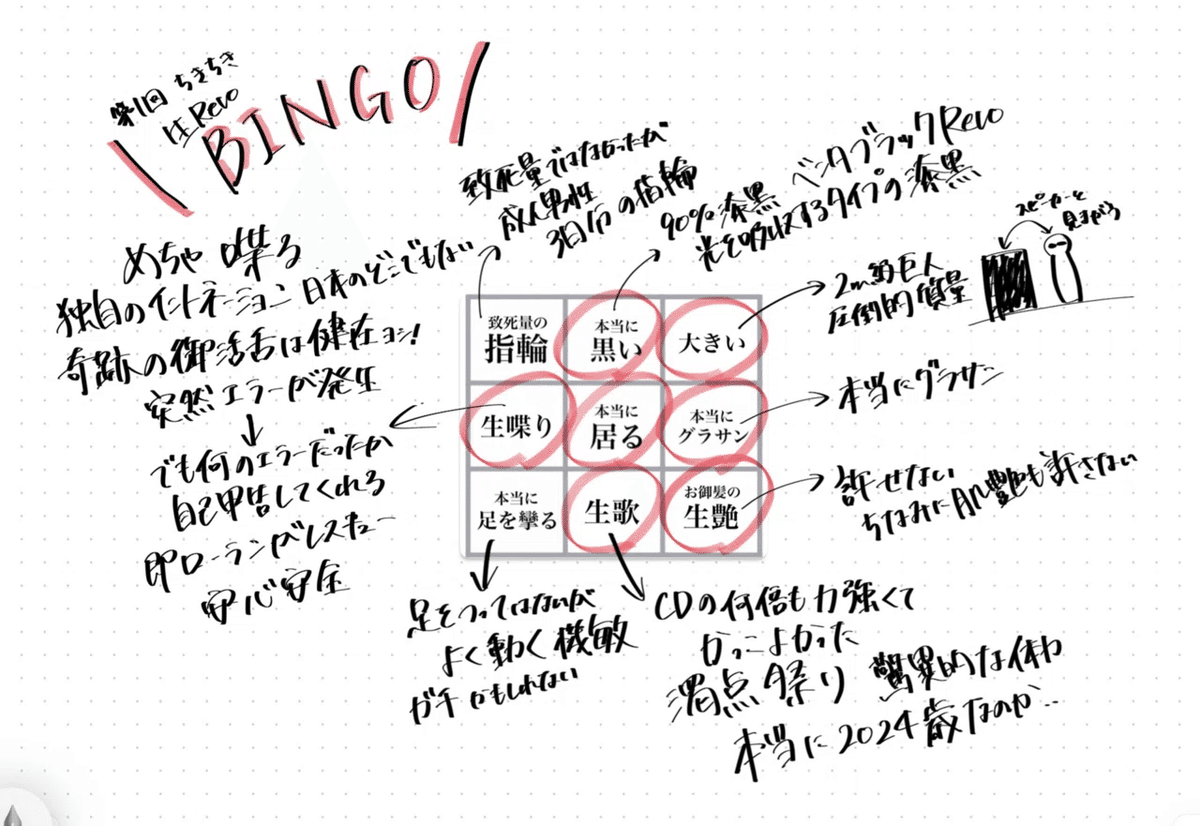 第1回 ちきちき
生Revo
\BINGO/
致死量ではなかったが
成人男性
3日分の指輪
ベンタブラックRevo
90%漆黒
光を吸収するタイプの漆黒
スピーカーと
見まがう
2m弱巨人
圧倒的質量
めちゃ喋る
独自のイントネーション 日本のどこでもない
奇跡の御活舌は健在ヨシ!
突然エラーが発生
↓
でも何のエラーだったか
自己申告してくれる
即ローランがレスキュー
安心安全
致死量の
指輪
本当に
黒い
大きい
生喋り
本当に
居る
本当に
グラサン
本当に
足を攣る
生歌
お御髪の
生艶
本当にグラサン
許せない
ちなみに肌艶も許さない
足をつってはないが
よく動く 機敏
ガチかもしれない
CDの何倍も力強くて
かっこよかった
濁点祭り 驚異的な体力
本当に2024歳なのか‥